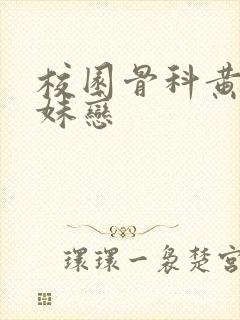 校園骨科黃
妹戀
環環一裊楚宮